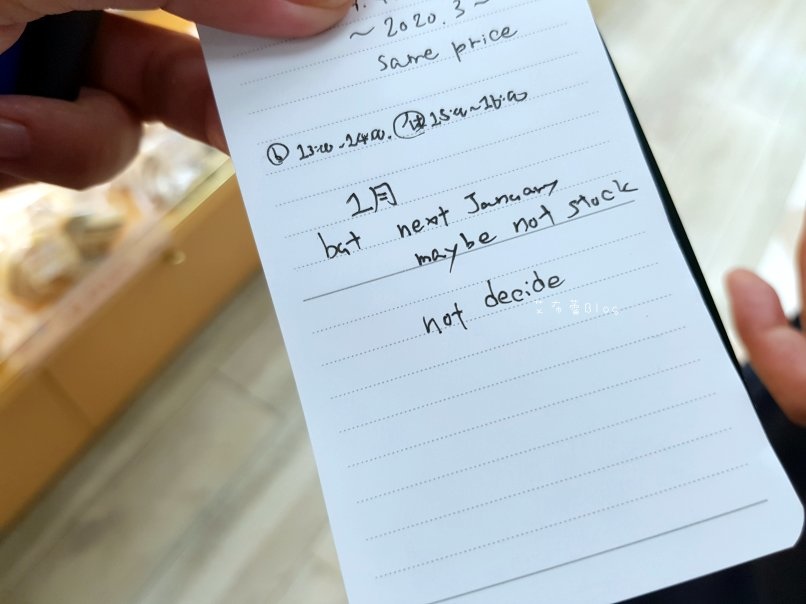 ~2020.3~
same price
⑥ 13:00~14:00. 15:00~16:00
1月
but next January
maybe not stock
not decide
艾布蕾Blog